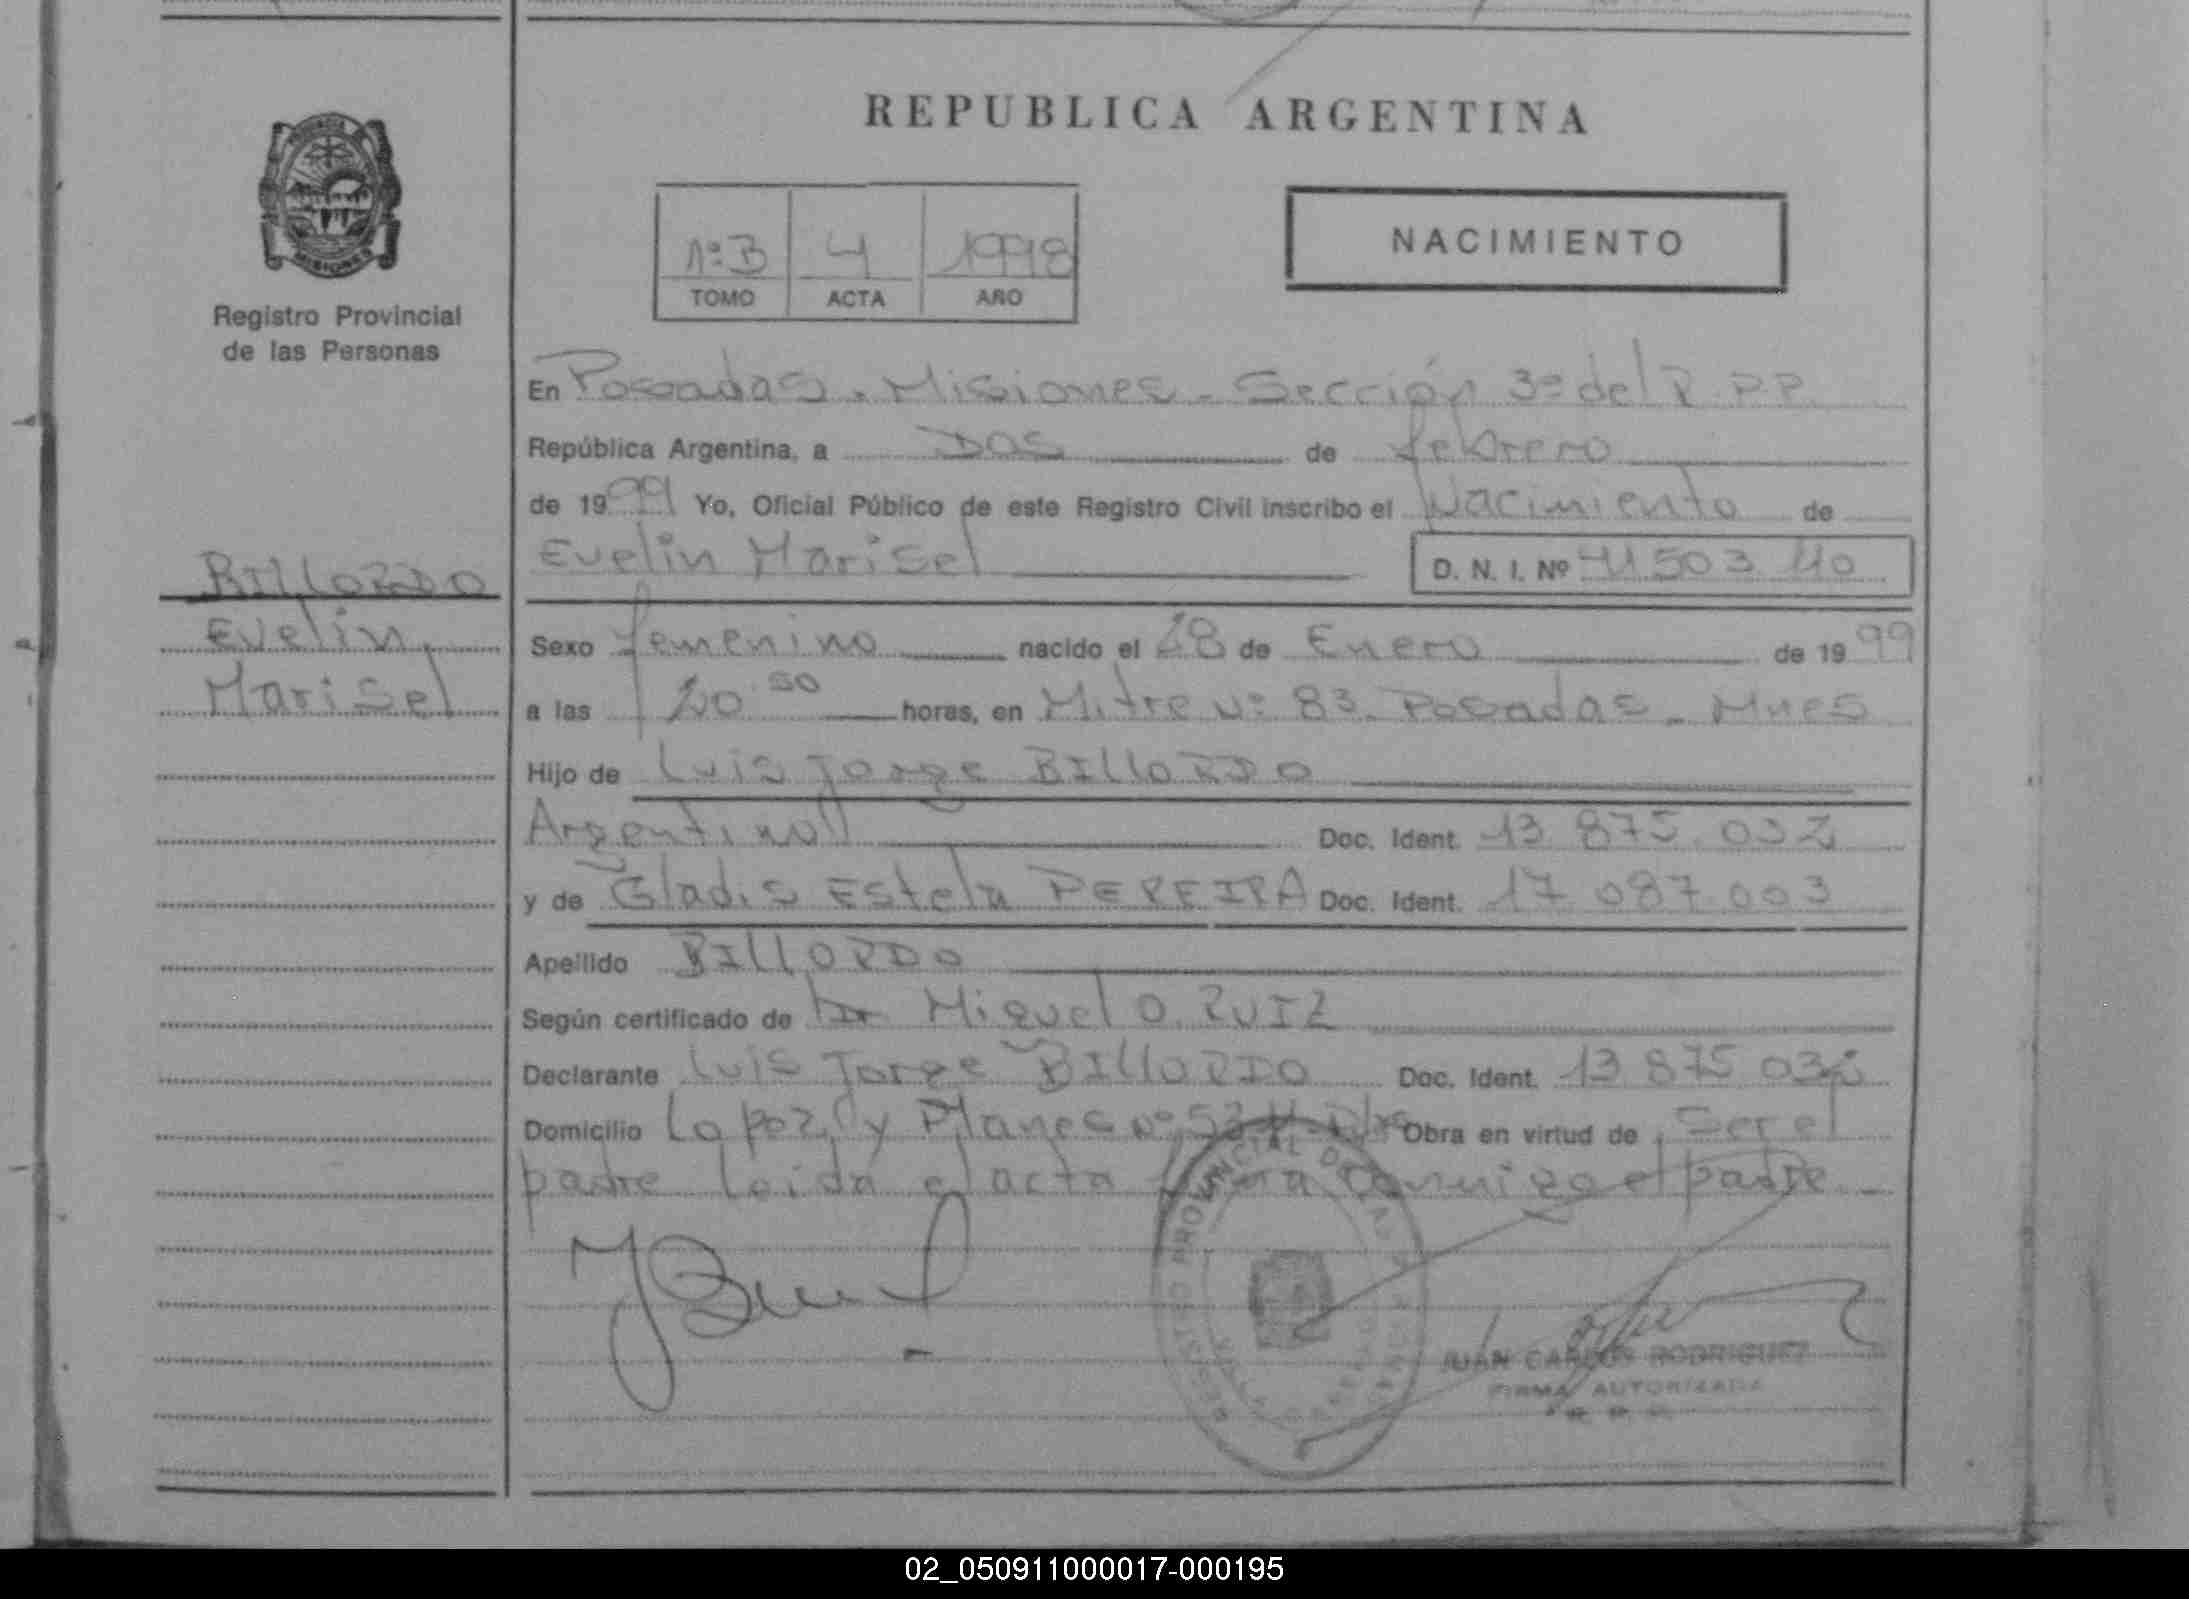 REPUBLICA ARGENTINA
MISIONES
Registro Provincial
de las Personas
Nº B 4 1998
TOMO ACTA AÑO
NACIMIENTO
En Posadas. Misiones - Sección 3º del R.P.P.
República Argentina, a DOS de febrero
de 1999 Yo, Oficial Público de este Registro Civil inscribo el Nacimiento de
Evelin Marisel D. N. I. Nº 41 503 110
BILLORDO
Evelin
Marisel
Sexo femenino nacido el 28 de Enero de 1999
a las horas, en Mitre Nº 83. Posadas - Mnes
Hijo de Luis Jorge BILLORDO
Argentino Doc. Ident. 13 875 032
y de Gladis Estela PEREIRA Doc. Ident. 17 087.003
Apellido BILLORDO
Según certificado de Dr Miguel O. RUIZ
Declarante Luis Jorge BILLORDO Doc. Ident. 13 875 032
Domicilio Lopoz y Planes Nº Obra en virtud de ser el
padre Leida el acta firma conmigo el padre
JUAN CARLOS RODRIGUEZ
FIRMA AUTORIZADA
02_050911000017-000195